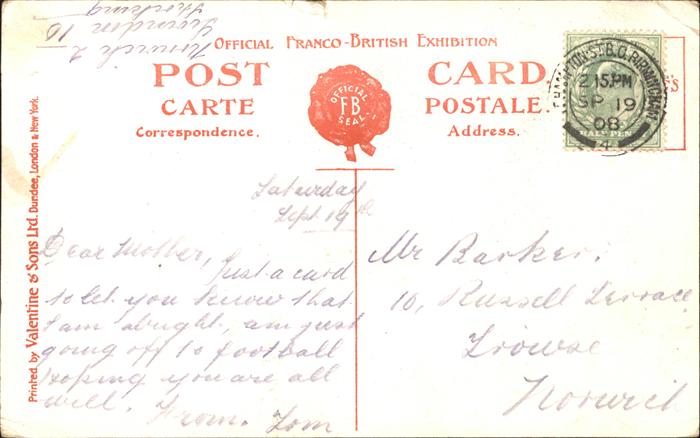 Norwich 2
Swindon 10
OFFICIAL FRANCO-BRITISH EXHIBITION
POST CARD
CARTE POSTALE
Correspondence. Address.
OFFICIAL
FB
SEAL
2 15 PM
SP 19
08
4
HALF PENNY
Printed by Valentine & Sons Ltd. Dundee, London & New York.
Saturday
Sept. 19th
Dear Mother,
Just a card
to let you know that
I am alright, am just
going off to football
Hoping you are all
well. From. Tom
Mr Barker.
10, Russell Terrace
Trowse
Norwich